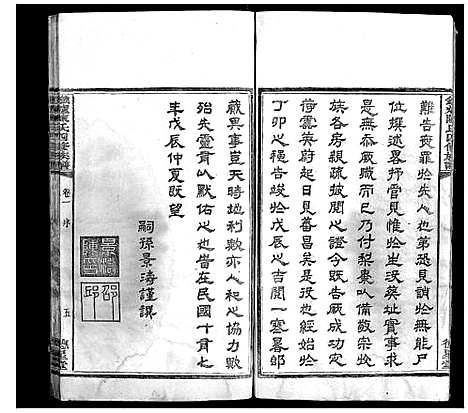 難告斑罪於先人也弟恐見誚於無能尸
位撰述畧抒管見惟於生沒葬址實事求
是無忝厥職而已乃付梨棗八備敬宗收
族各房親疏披閱心證今既告厥成功定
荷靈英蔚起日見番昌矣是役也經始於
丁卯心辰告竣於戊辰心吉閱一寒暑郎
蕆其事豈天時地利歟亦人和心協力歟
殆先靈有以默佑心也峕在民國十有七
年戊辰仲夏既望
嗣孫景濤謹撰
卷一 序
五